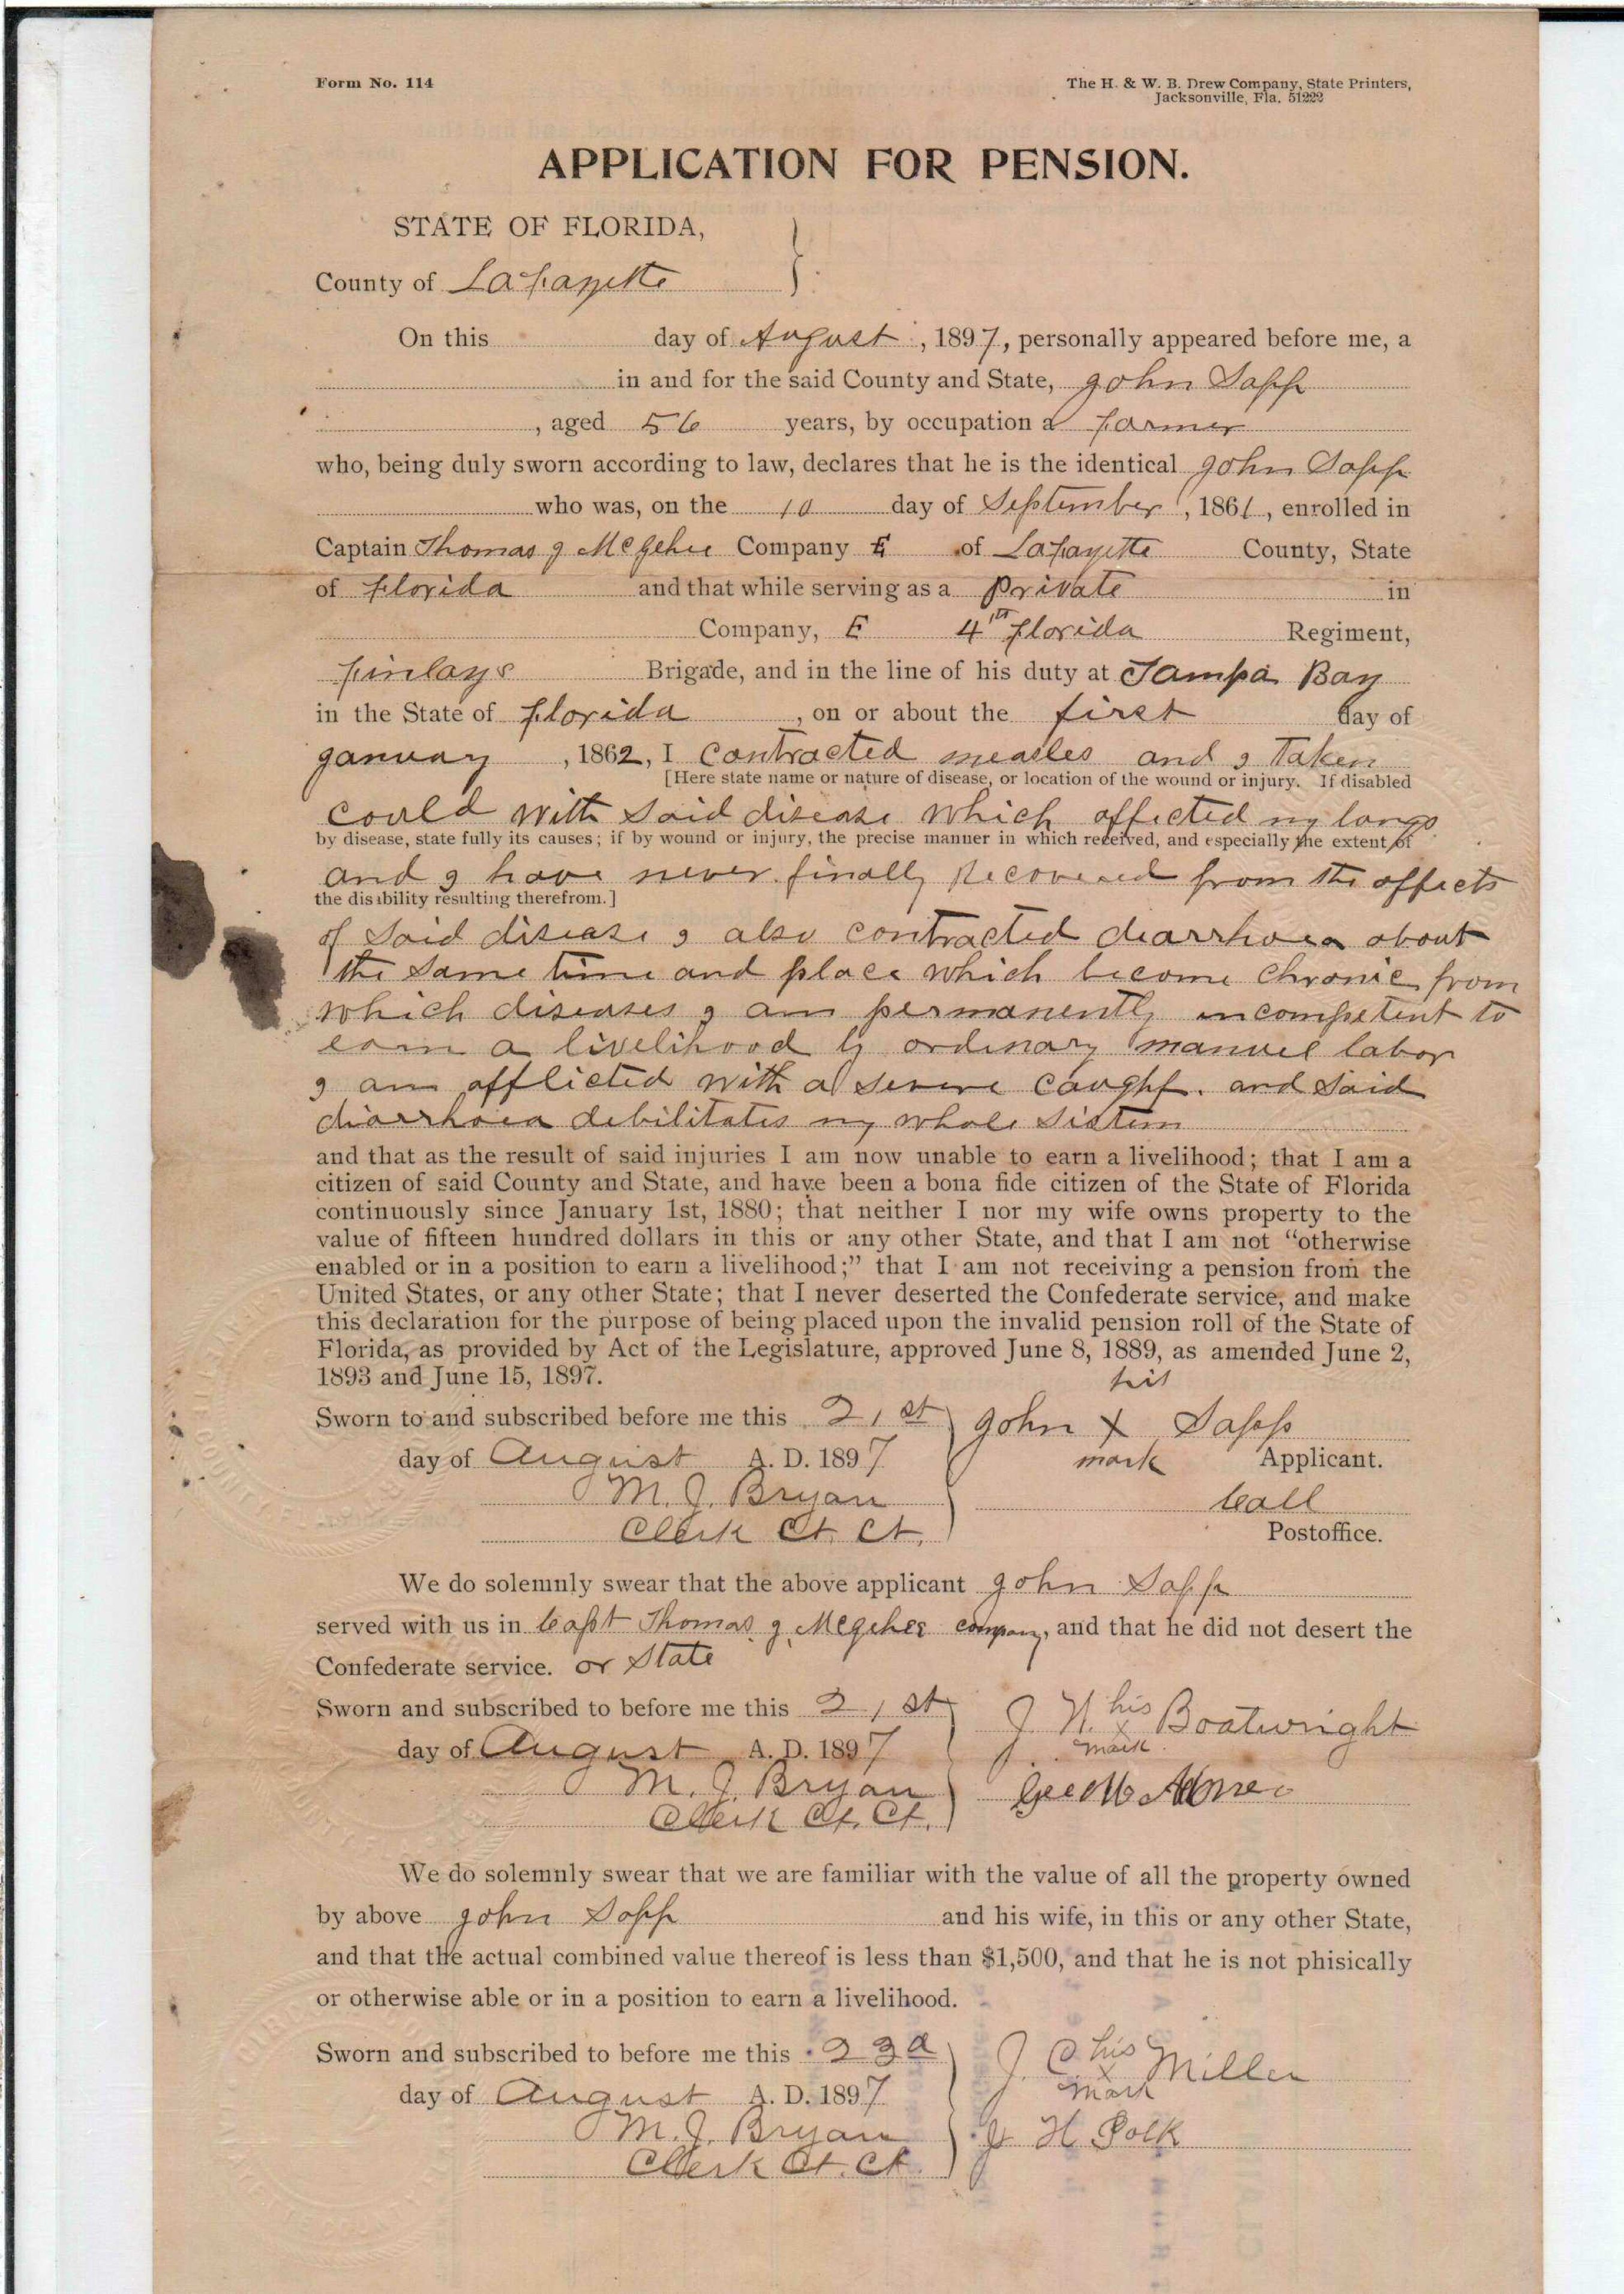 Form No. 114
The H. & W. B. Drew Company, State Printers,
Jacksonville, Fla. 51222
APPLICATION FOR PENSION.
STATE OF FLORIDA,
County of Lafayette
On this day of August, 1897, personally appeared before me, a
in and for the said County and State, John Sapp
, aged 56 years, by occupation a farmer
who, being duly sworn according to law, declares that he is the identical John Sapp
who was, on the 10 day of September, 1861, enrolled in
Captain Thomas J McGehee Company E of Lafayette County, State
of Florida and that while serving as a Private in
Company, E 4th Florida Regiment,
Finlays Brigade, and in the line of his duty at Tampa Bay
in the State of Florida, on or about the first day of
January, 1862, I contracted measles and I Taken
[Here state name or nature of disease, or location of the wound or injury. If disabled
could with said disease which affected my longs
by disease, state fully its causes; if by wound or injury, the precise manner in which received, and especially the extent of
and I have never finally Recovered from the affects
the disibility resulting therefrom.]
of said disease I also contracted diarrhoea about
the same time and place which become chronic from
which diseases I am permanently incompetent to
earn a livelihood by ordinary manuel labor
I am afflicted with a severe caugh. and said
diarrhoea debilitates my whole sistem
and that as the result of said injuries I am now unable to earn a livelihood; that I am a
citizen of said County and State, and have been a bona fide citizen of the State of Florida
continuously since January 1st, 1880; that neither I nor my wife owns property to the
value of fifteen hundred dollars in this or any other State, and that I am not “otherwise
enabled or in a position to earn a livelihood;” that I am not receiving a pension from the
United States, or any other State; that I never deserted the Confederate service, and make
this declaration for the purpose of being placed upon the invalid pension roll of the State of
Florida, as provided by Act of the Legislature, approved June 8, 1889, as amended June 2,
1893 and June 15, 1897.
his
Sworn to and subscribed before me this 21st John X Sapp
day of August A. D. 1897 mark Applicant.
M. J. Bryan Call
Clerk Ct. Ct. Postoffice.
We do solemnly swear that the above applicant John Sapp
served with us in Capt Thomas J. McGehee company, and that he did not desert the
Confederate service. or State
Sworn and subscribed to before me this 21st J. N. his x mark Boatwright
day of August A. D. 1897
M. J. Bryan
Clerk Ct. Ct.
We do solemnly swear that we are familiar with the value of all the property owned
by above John Sapp and his wife, in this or any other State,
and that the actual combined value thereof is less than $1,500, and that he is not phisically
or otherwise able or in a position to earn a livelihood.
Sworn and subscribed to before me this 23d J. C. his x mark Miller
day of August A. D. 1897
M. J. Bryan J H Polk
Clerk Ct. Ct.